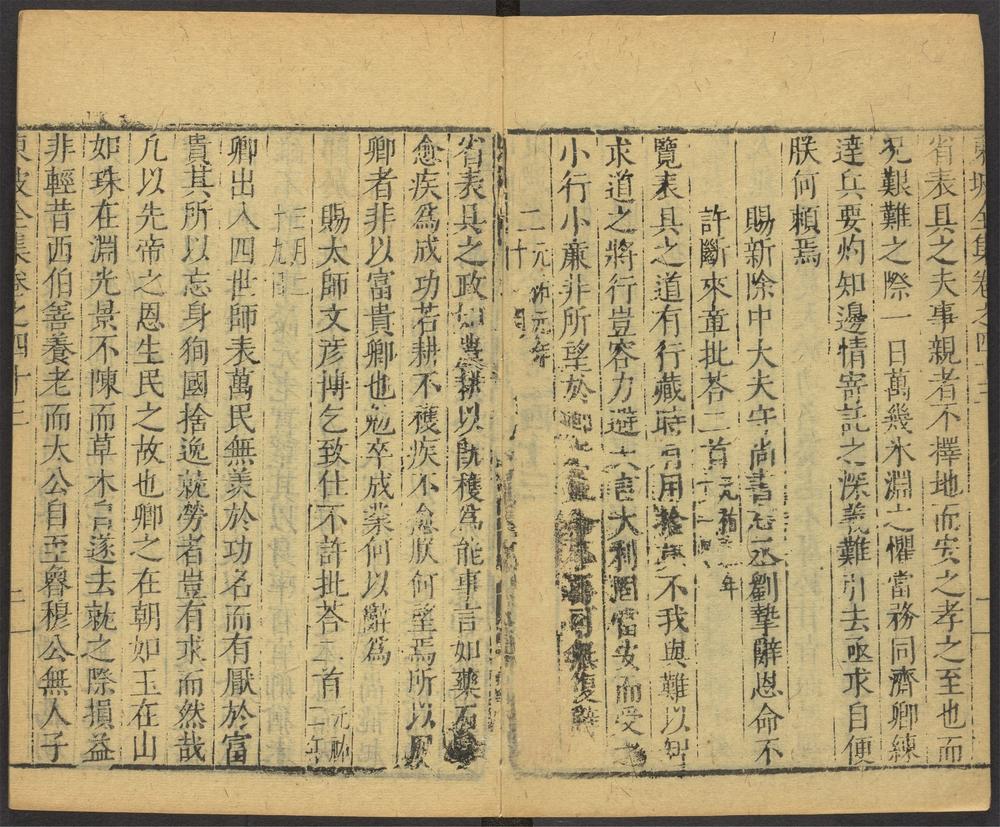 東坡全集卷之四十三
省表具之夫事親者不擇地而安之孝之至也而
況艱難之際一日萬幾氷淵之懼當務同濟卿練
達兵要灼知邊情寄託之深義難引去亟求自便
朕何賴焉
賜新除中大夫守尚書右丞劉摯辭恩命不
許斷來章批荅二首元祐元年
十一
覽表具之道有行藏時有用捨時不我與難以智
求道之將行豈容力避大言大利固當安而受之
小行小廉非所望於卿
二元祐元年
十
省表具之政如農耕以旣穫爲能事言如藥石以
愈疾爲成功若耕不穫疾不愈朕何望焉所以用
卿者非以富貴卿也勉卒成業何以辭爲
賜太師文彦博乞致仕不許批荅二首元祐二年
三月二
十九日
卿出入四世師表萬民無羨於功名而有厭於富
貴其所以忘身徇國捨逸就勞者豈有求而然哉
凢以先帝之恩生民之故也卿之在朝如玉在山
如珠在淵光景不陳而草木自遂去就之際損益
非輕昔西伯善養老而太公自至魯穆公無人子
東坡全集卷之四十三
二